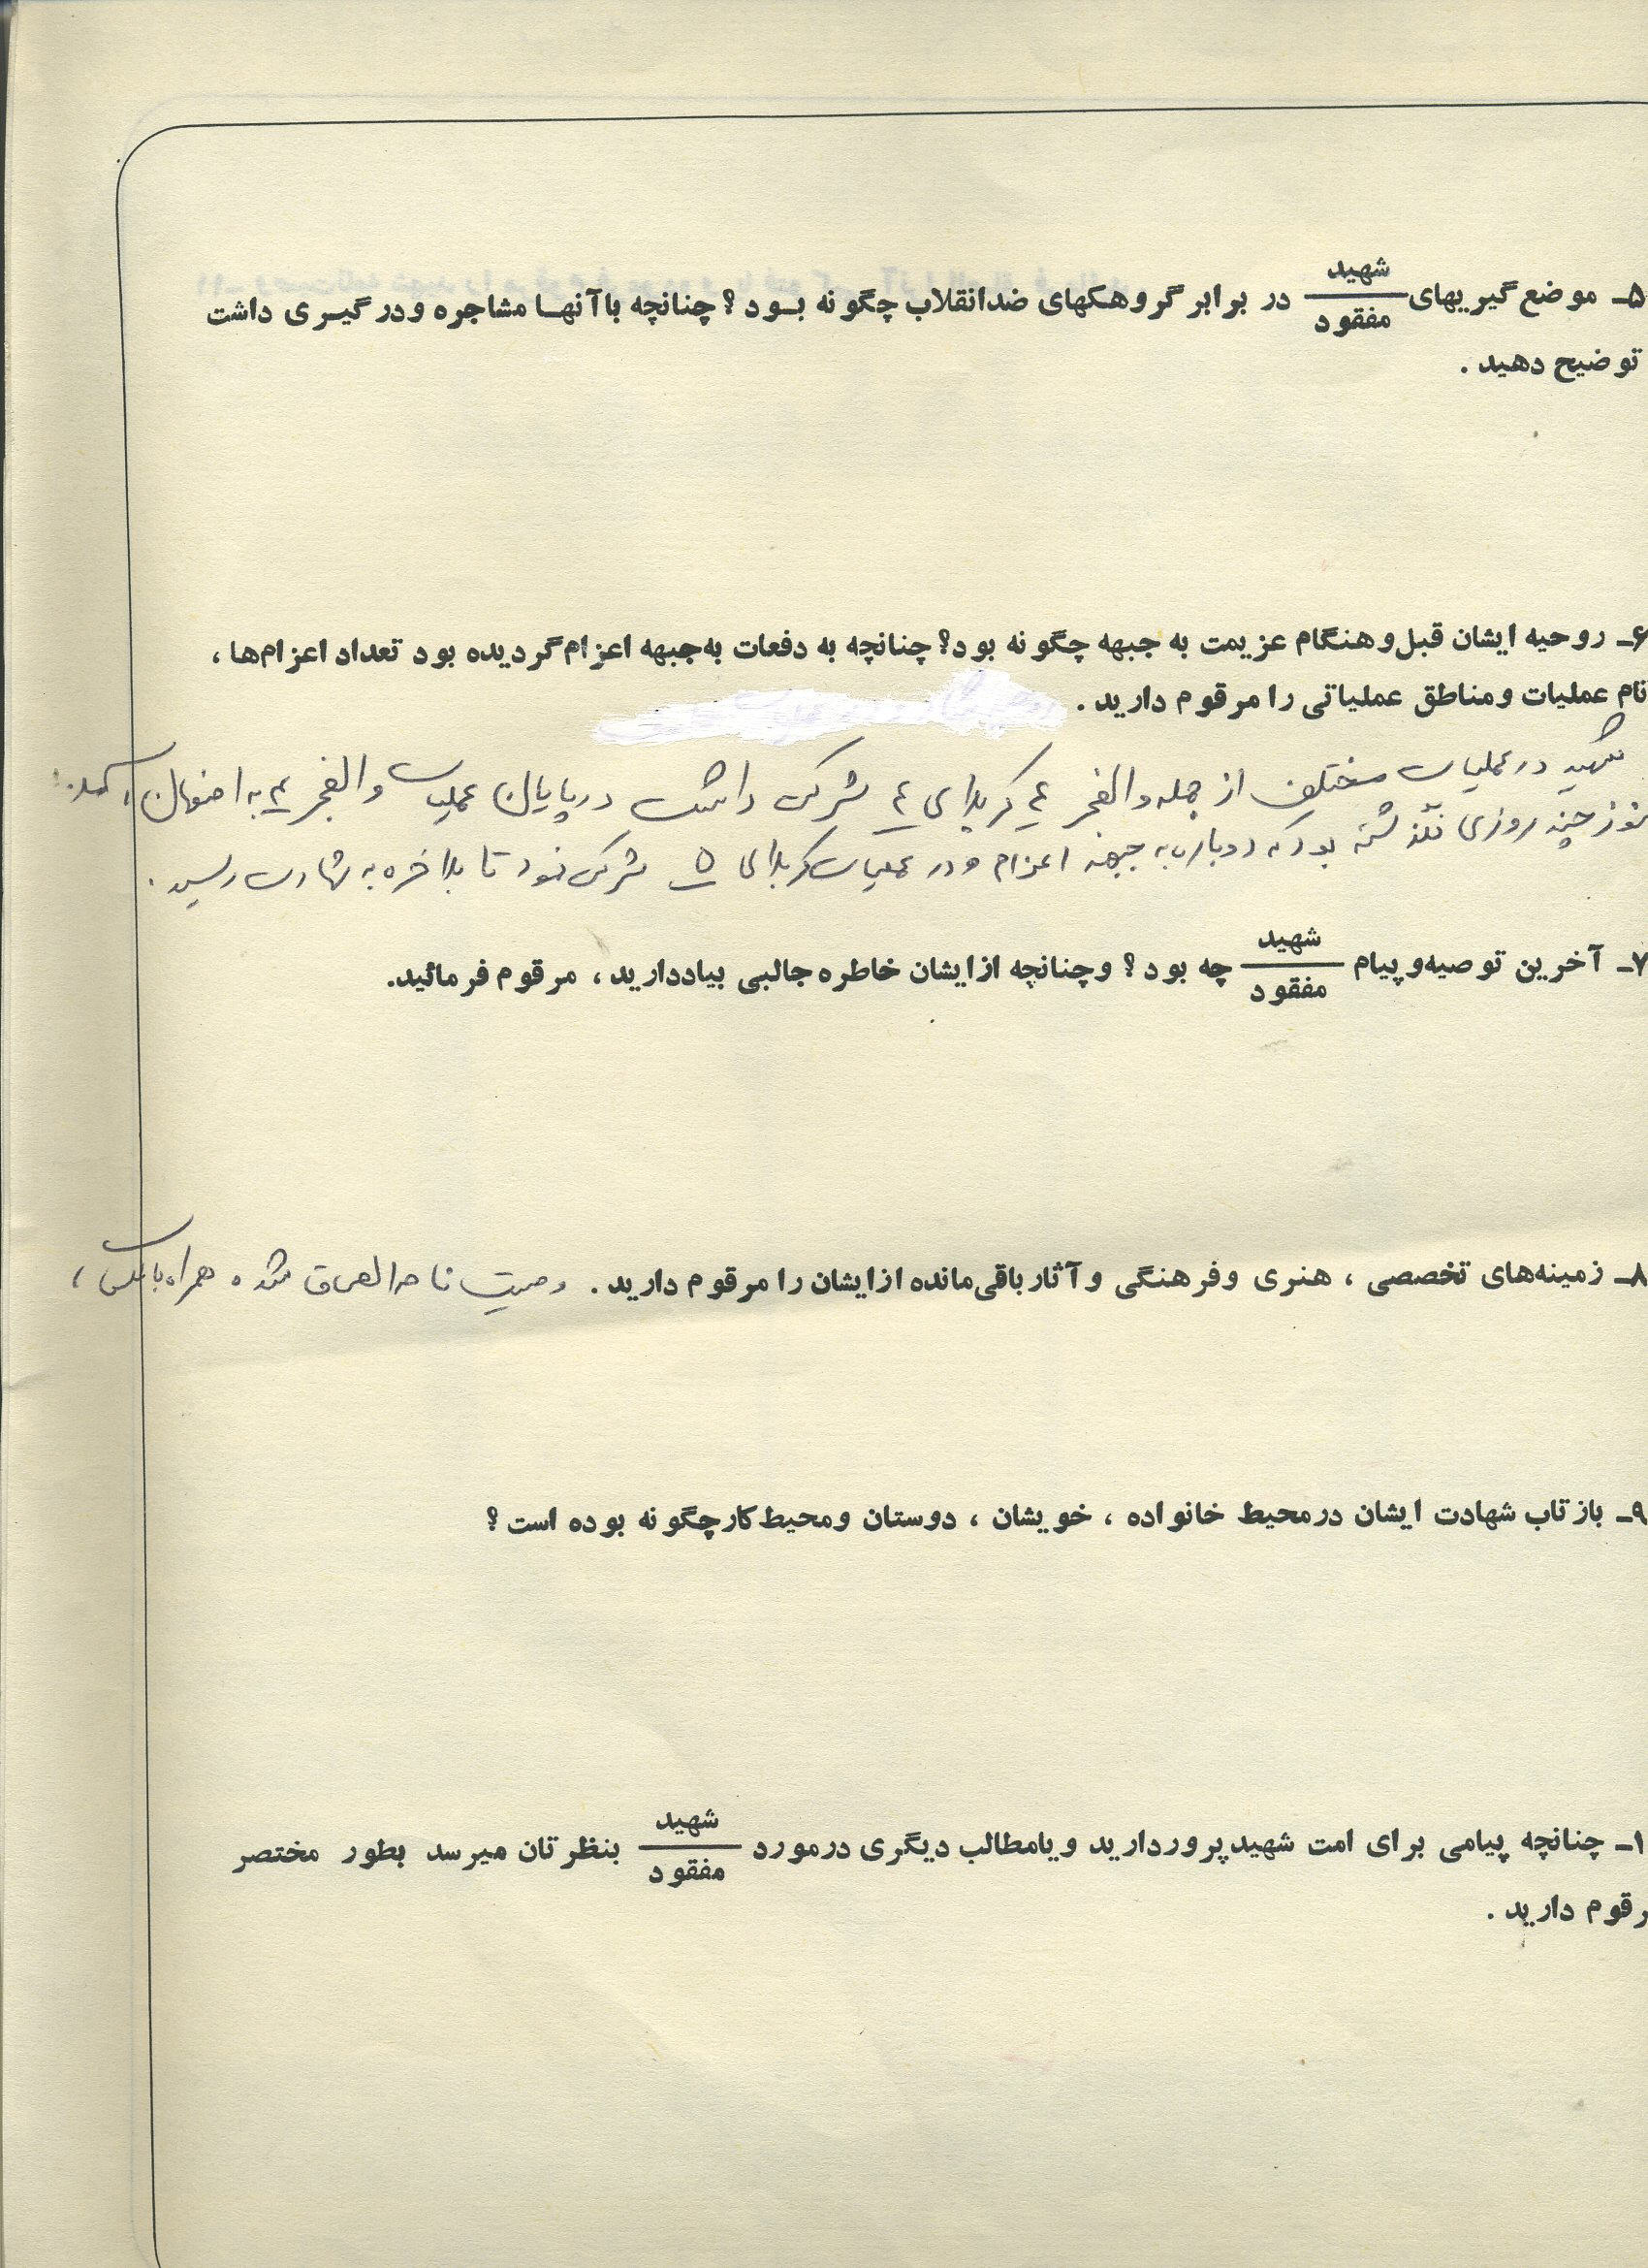 ۵ـ موضع‌گیریهای شهید/مفقود در برابر گروهکهای ضدانقلاب چگونه بود؟ چنانچه با آنها مشاجره و درگیری داشت
توضیح دهید.
۶ـ روحیه ایشان قبل و هنگام عزیمت به جبهه چگونه بود؟ چنانچه به دفعات به جبهه اعزام گردیده بود تعداد اعزام‌ها،
نام عملیات و مناطق عملیاتی را مرقوم دارید.
شهید در عملیات مختلف از جمله والفجر ۴ کربلای ۴ شرکت داشت در پایان عملیات والفجر ۴ به اصفهان آمد
نوز چند روزی نگذشته بود که دوباره به جبهه اعزام و در عملیات کربلای ۵ شرکت نمود تا بلاخره به شهادت رسید.
۷ـ آخرین توصیه و پیام شهید/مفقود چه بود؟ و چنانچه از ایشان خاطره جالبی بیاد دارید، مرقوم فرمائید.
۸ـ زمینه‌های تخصصی، هنری و فرهنگی و آثار باقی‌مانده از ایشان را مرقوم دارید. وصیت نامه الصاق شده همراه با عکس
۹ـ بازتاب شهادت ایشان در محیط خانواده، خویشان، دوستان و محیط کار چگونه بوده است؟
۱ـ چنانچه پیامی برای امت شهیدپرور دارید و یا مطالب دیگری در مورد شهید/مفقود بنظرتان میرسد بطور مختصر
رقوم دارید.